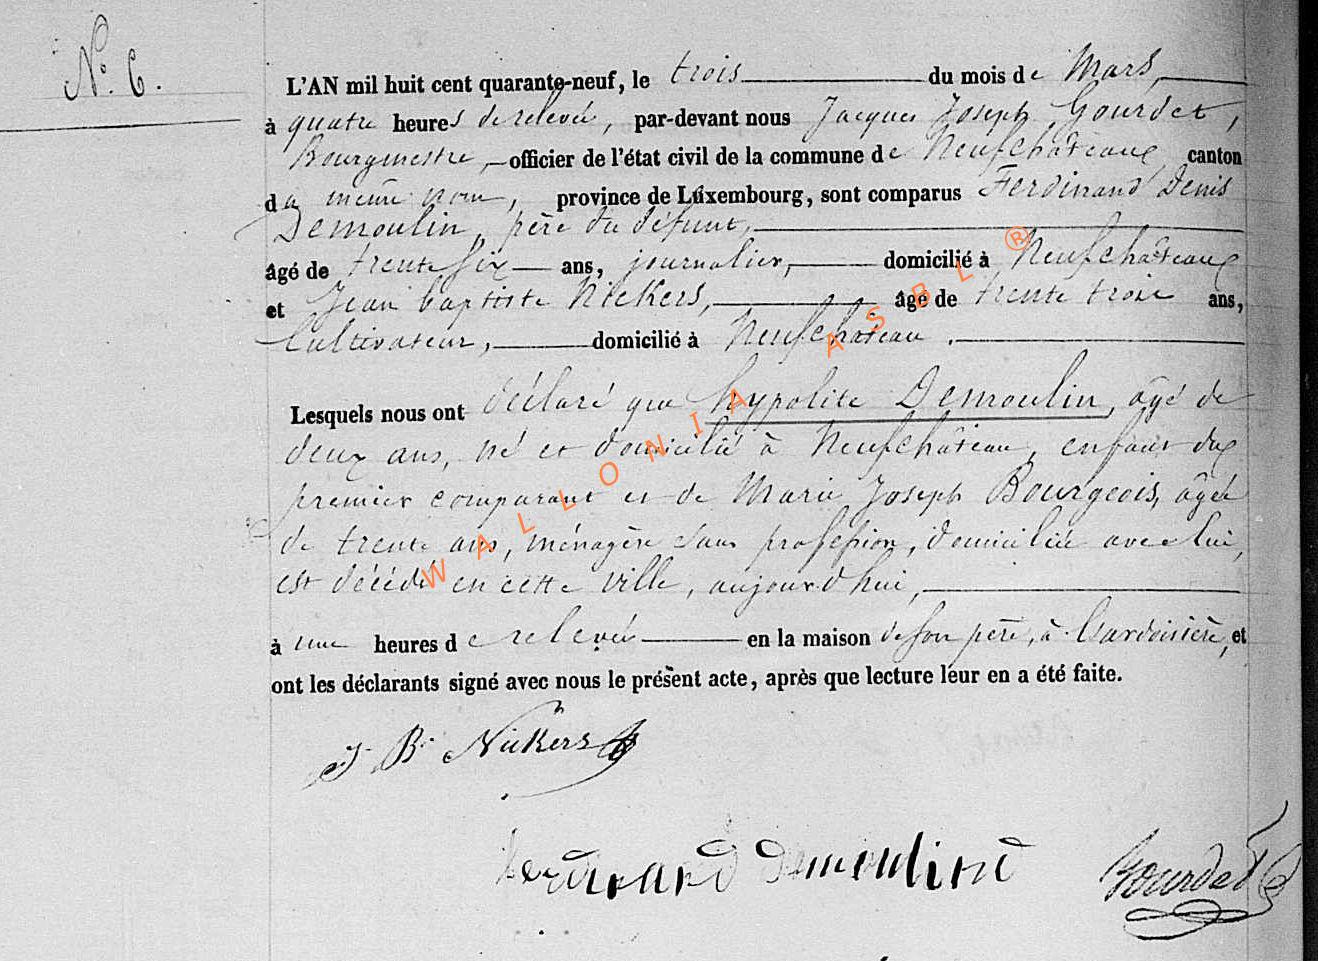 N°. 6.
L'AN mil huit cent quarante-neuf, le trois du mois de Mars,
à quatre heures de relevée, par-devant nous Jacques Joseph Gourdet,
Bourgmestre, officier de l'état civil de la commune de Neufchateau canton
du même nom, province de Luxembourg, sont comparus Ferdinand Denis
Demoulin, père du défunt,
âgé de trente six ans, journalier, domicilié à Neufchateau
et Jean baptiste Nickers, âgé de trente trois ans,
Cultivateur, domicilié à Neufchateau.
Lesquels nous ont déclaré que hypolite Demoulin, âgé de
deux ans, né et domicilié à Neufchâteau, enfant du
premier comparant et de Marie Joseph Bourgeois, âgée
de trente ans, ménagère sans profession, domiciliée avec lui,
est décédé en cette ville, aujourd'hui,
à une heures de relevée en la maison de son père, à l'ardoisière, et
ont les déclarants signé avec nous le présent acte, après que lecture leur en a été faite.
J. B. Nickers
ferdinand demoulin
Gourdet
WALLONIA ASBL ®